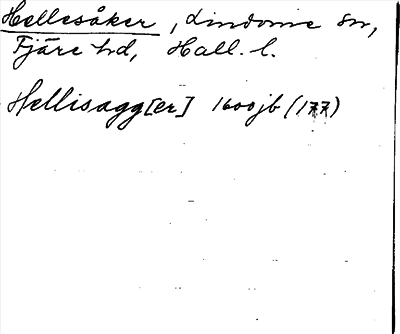 Hellesåker, Lindome sn,
Fjäre hd, Hall. l.
Hellisagg[er] 1600 jb (177)